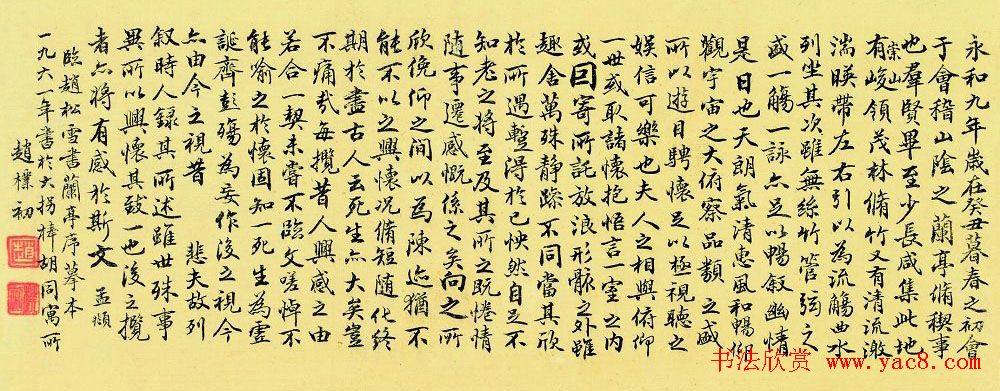 永和九年歲在癸丑暮春之初會
于會稽山陰之蘭亭脩稧事
也羣賢畢至少長咸集此地
有崇山峻領茂林脩竹又有清流激
湍暎帶左右引以為流觴曲水
列坐其次雖無絲竹管弦之
盛一觴一詠亦足以暢叙幽情
是日也天朗氣清惠風和暢仰
觀宇宙之大俯察品類之盛
所以遊目騁懷足以極視聽之
娛信可樂也夫人之相與俯仰
一世或取諸懷抱悟言一室之內
或因寄所託放浪形骸之外雖
趣舍萬殊静躁不同當其欣
於所遇蹔得於己怏然自足不
知老之將至及其所之既惓情
随事遷感慨係之矣向之所
欣俛仰之間以為陳迹猶不
能不以之興懷況脩短随化終
期於盡古人云死生亦大矣豈
不痛哉每攬昔人興感之由
若合一契未嘗不臨文嗟悼不
能喻之於懷固知一死生為虛
誕齊彭殤為妄作後之視今
亦由今之視昔 悲夫故列
叙時人錄其所述雖世殊事
異所以興懷其致一也後之攬
者亦將有感於斯文 孟頫
臨趙松雪書蘭亭序摹本
一九六一年書於大拐棒胡同寓所
趙樸初
书法欣赏
www.yac8.com